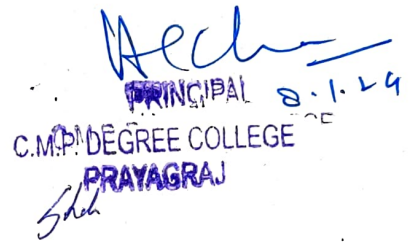 PRINCIPAL 8.1.24
C.M.P. DEGREE COLLEGE
PRAYAGRAJ